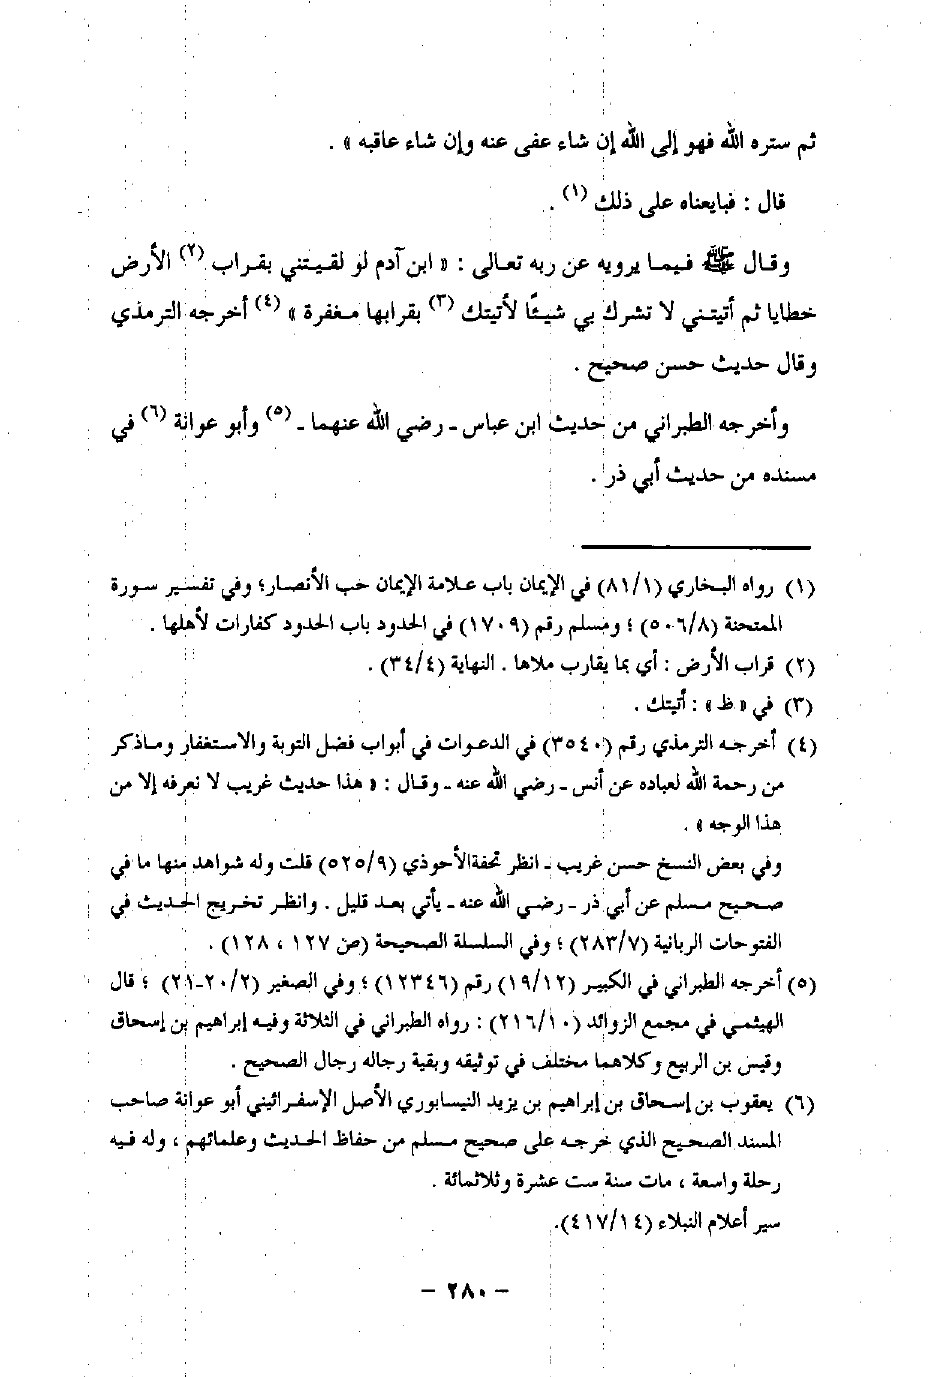 ثم ستره الله فهو إلى الله إن شاء عفى عنه وإن شاء عاقبه » .
قال : فبايعناه على ذلك (١) .
وقال ﷺ فيما يرويه عن ربه تعالى : « ابن آدم لو لقيتني بقراب (٢) الأرض
خطايا ثم أتيتني لا تشرك بي شيئًا لأتيتك (٣) بقرابها مغفرة » (٤) أخرجه الترمذي
وقال حديث حسن صحيح .
وأخرجه الطبراني من حديث ابن عباس ـ رضي الله عنهما ـ (٥) وأبو عوانة (٦) في
مسنده من حديث أبي ذر .
(١) رواه البخاري (٨١/١) في الإيمان باب علامة الإيمان حب الأنصار؛ وفي تفسير سورة
الممتحنة (٥٠٦/٨) ؛ ومسلم رقم (١٧٠٩) في الحدود باب الحدود كفارات لأهلها .
(٢) قراب الأرض : أي بما يقارب ملاها . النهاية (٣٤/٤) .
(٣) في « ظ » : أتيتك .
(٤) أخرجه الترمذي رقم (٣٥٤٠) في الدعوات في أبواب فضل التوبة والاستغفار وماذكر
من رحمة الله لعباده عن أنس ـ رضي الله عنه ـ وقال : « هذا حديث غريب لا نعرفه إلا من
هذا الوجه » .
وفي بعض النسخ حسن غريب ـ انظر تحفةالأحوذي (٥٢٥/٩) قلت وله شواهد منها ما في
صحيح مسلم عن أبي ذر ـ رضي الله عنه ـ يأتي بعد قليل . وانظر تخريج الحديث في
الفتوحات الربانية (٢٨٣/٧) ؛ وفي السلسلة الصحيحة (ص ١٢٧ ، ١٢٨) .
(٥) أخرجه الطبراني في الكبير (١٩/١٢) رقم (١٢٣٤٦) ؛ وفي الصغير (٢٠/٢-٢١) ؛ قال
الهيثمي في مجمع الزوائد (٢١٦/١٠) : رواه الطبراني في الثلاثة وفيه إبراهيم بن إسحاق
وقيس بن الربيع وكلاهما مختلف في توثيقه وبقية رجاله رجال الصحيح .
(٦) يعقوب بن إسحاق بن إبراهيم بن يزيد النيسابوري الأصل الإسفرائيني أبو عوانة صاحب
المسند الصحيح الذي خرجه على صحيح مسلم من حفاظ الحديث وعلمائهم ، وله فيه
رحلة واسعة ، مات سنة ست عشرة وثلاثمائة .
سير أعلام النبلاء (٤١٧/١٤).
– ٢٨٠ –